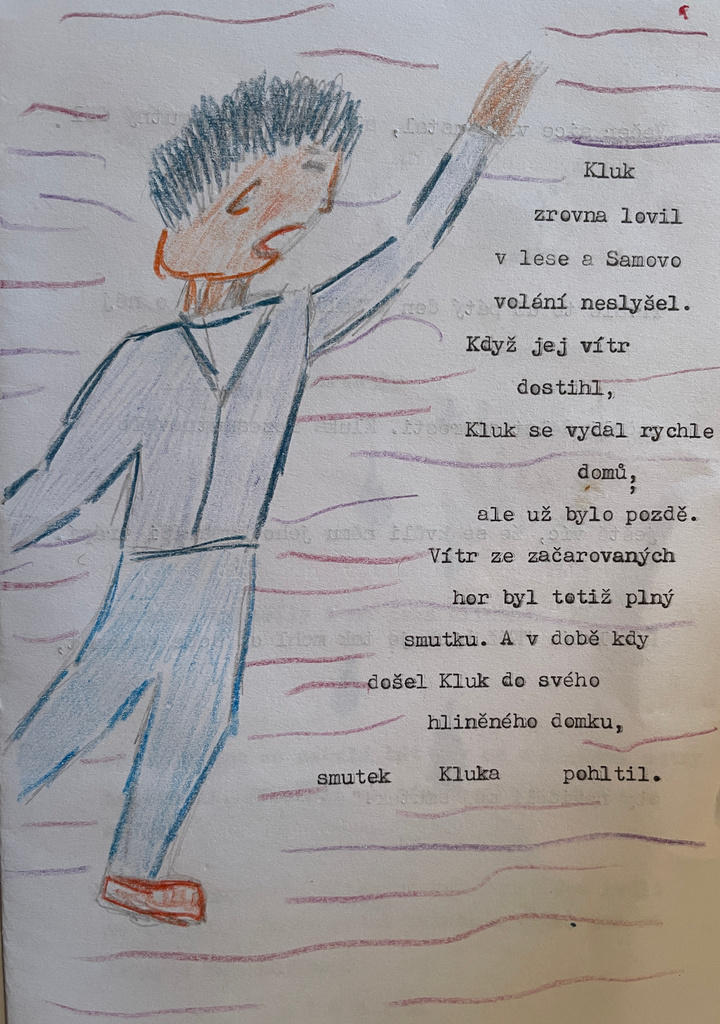 Kluk
zrovna lovil
v lese a Samovo
volání neslyšel.
Když jej vítr
dostihl,
Kluk se vydal rychle
domů;
ale už bylo pozdě.
Vítr ze začarovaných
hor byl totiž plný
smutku. A v době kdy
došel Kluk do svého
hliněného domku,
smutek Kluka pohltil.